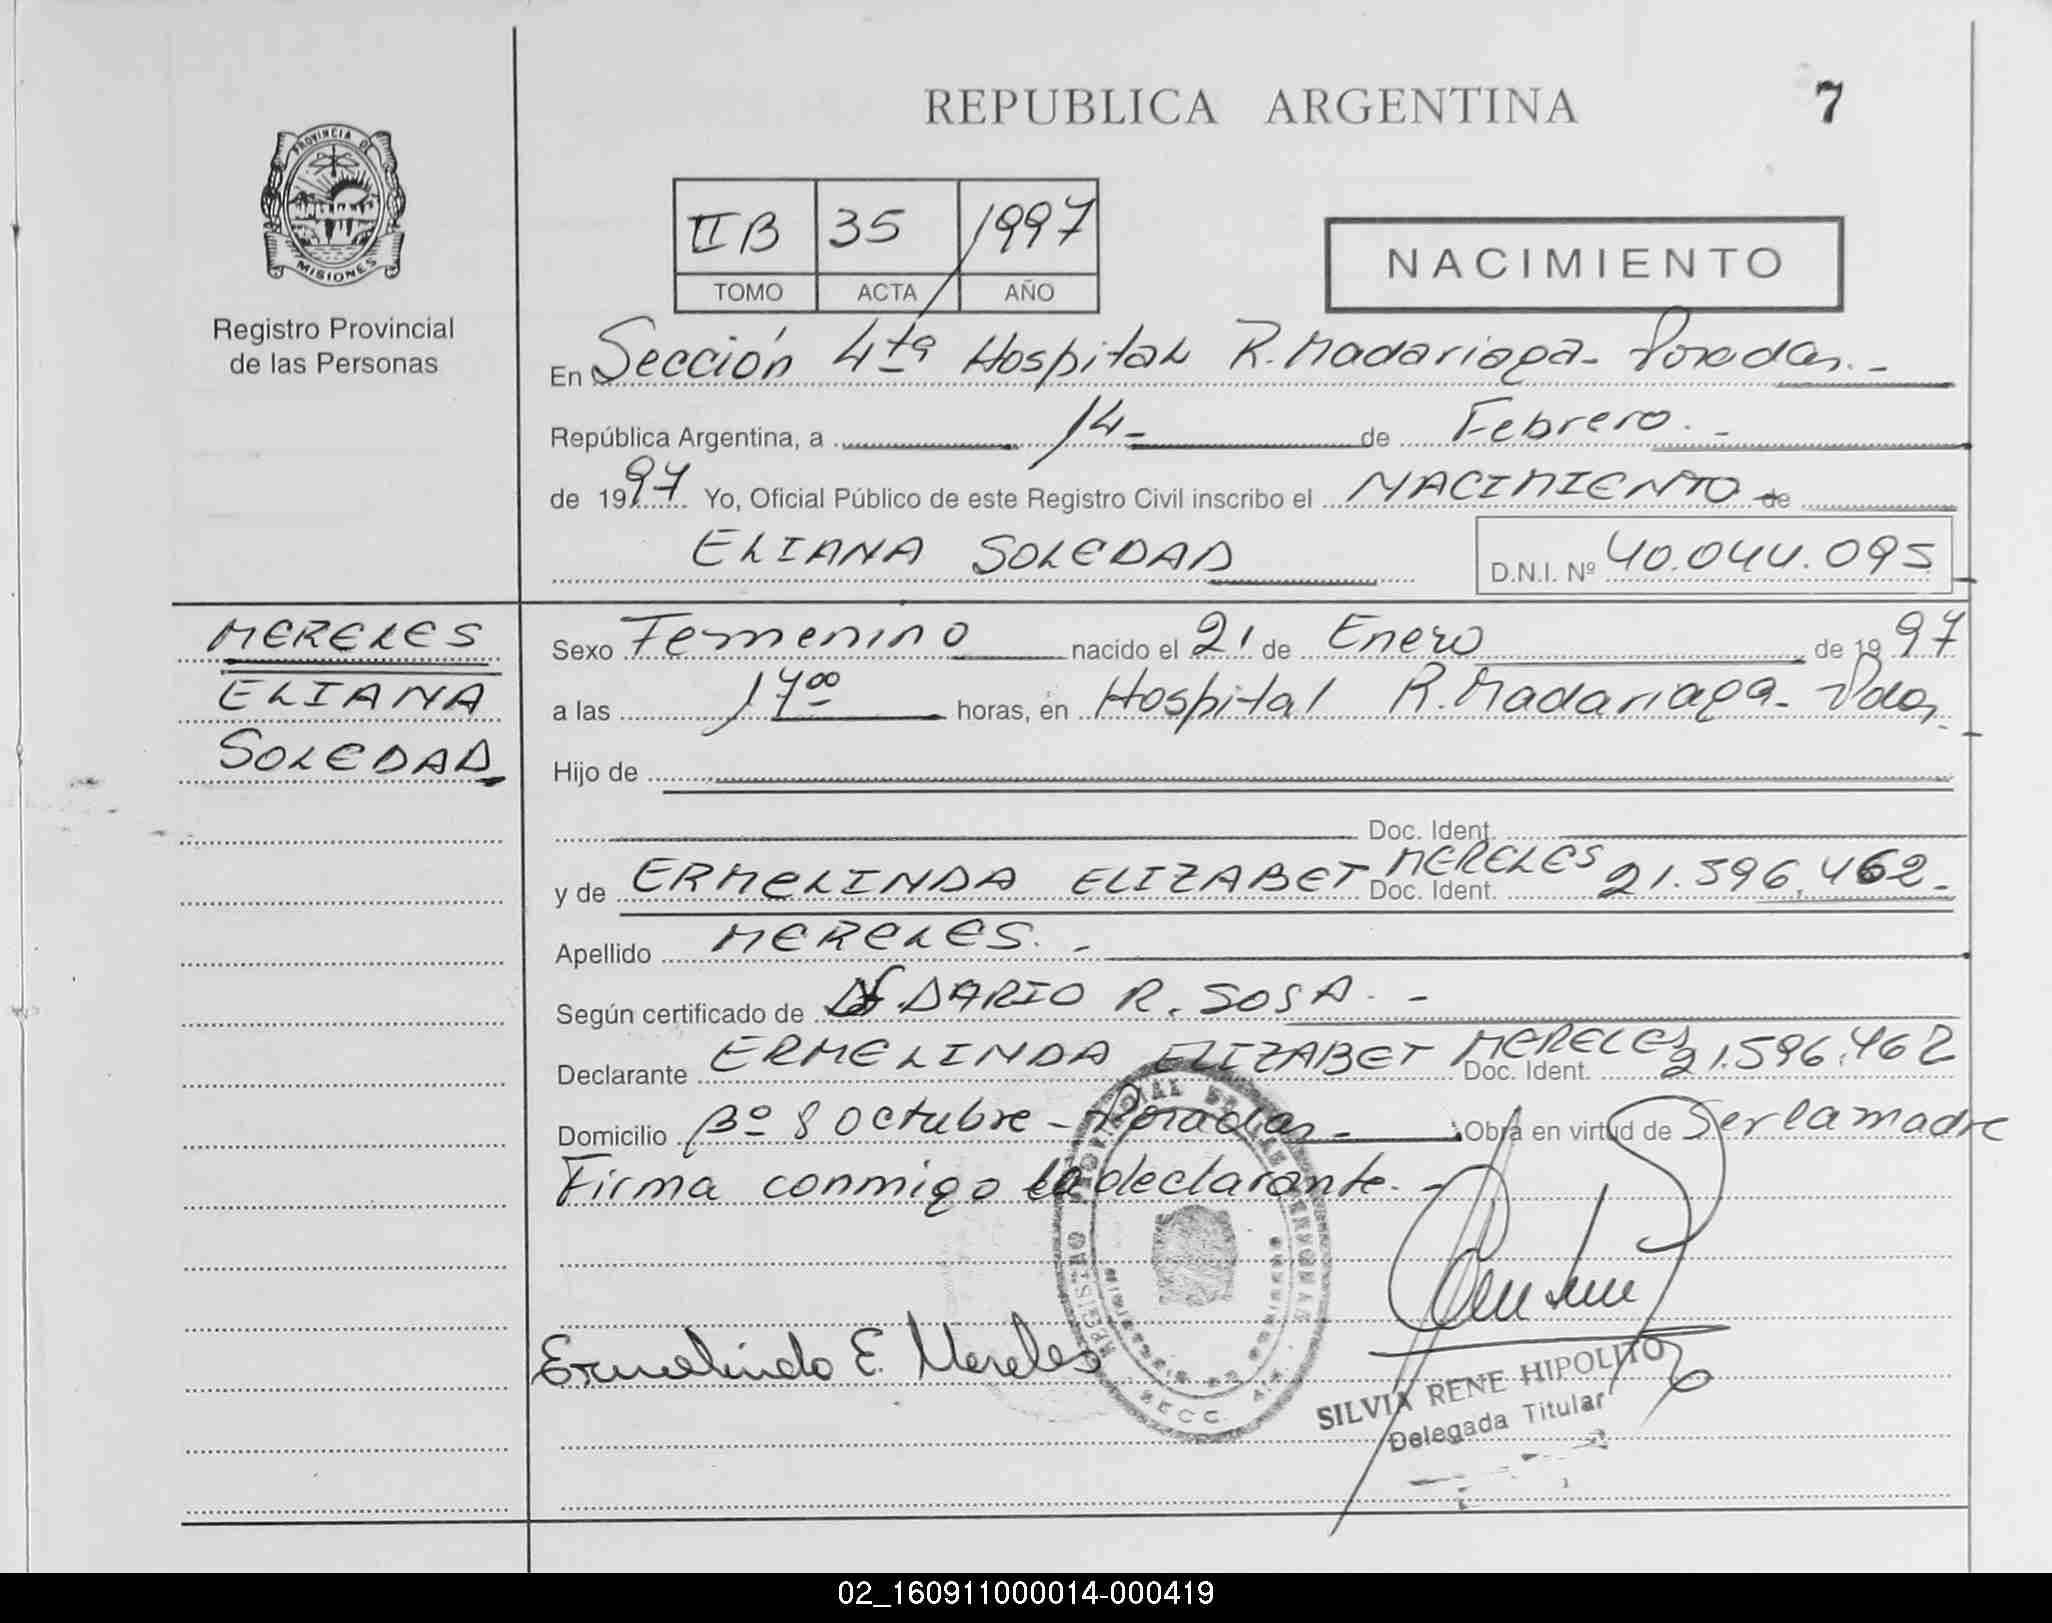 REPUBLICA ARGENTINA
7
PROVINCIA DE
MISIONES
Registro Provincial
de las Personas
II B 35 1997
TOMO ACTA AÑO
NACIMIENTO
En Sección 4ta Hospital R. Madariaga - Posadas. -
República Argentina, a 14 - de Febrero. -
de 1997 Yo, Oficial Público de este Registro Civil inscribo el NACIMIENTO de
ELIANA SOLEDAD
D.N.I. Nº 40.044.095
MERELES
ELIANA
SOLEDAD
Sexo Femenino nacido el 21 de Enero de 1997
a las 17 00 horas, en Hospital R. Madariaga - Pdas.
Hijo de
Doc. Ident.
y de ERMELINDA ELIZABET MERELES Doc. Ident. 21.596.462 -
Apellido MERELES. -
Según certificado de DARIO R. SOSA. -
Declarante ERMELINDA ELIZABET MERELES Doc. Ident. 21.596.462
Domicilio Bº 8 Octubre - Posadas - Obra en virtud de Ser la madre
Firma conmigo la declarante. -
Ermelinda E. Mereles
SILVIA RENE HIPOLITO
Delegada Titular
02_160911000014-000419